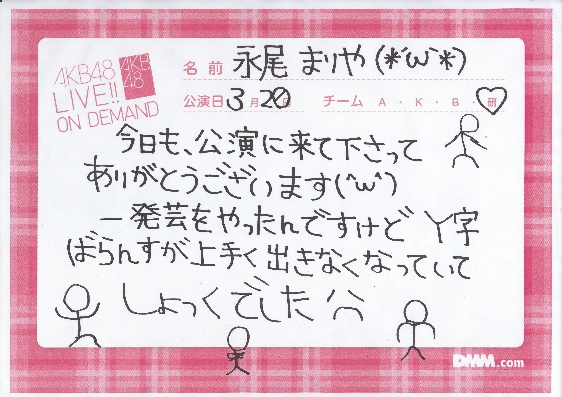 AKB48
LIVE!!
ON DEMAND
AKB
48
名前 永尾まりや(*´ω`*)
公演日 3月20日 チーム A・K・B・研
今日も、公演に来て下さって
ありがとうございます(^ω^)
一発芸をやったんですけど Y字
ばらんすが上手く出きなくなっていて
しょっくでした ^^
DMM.com